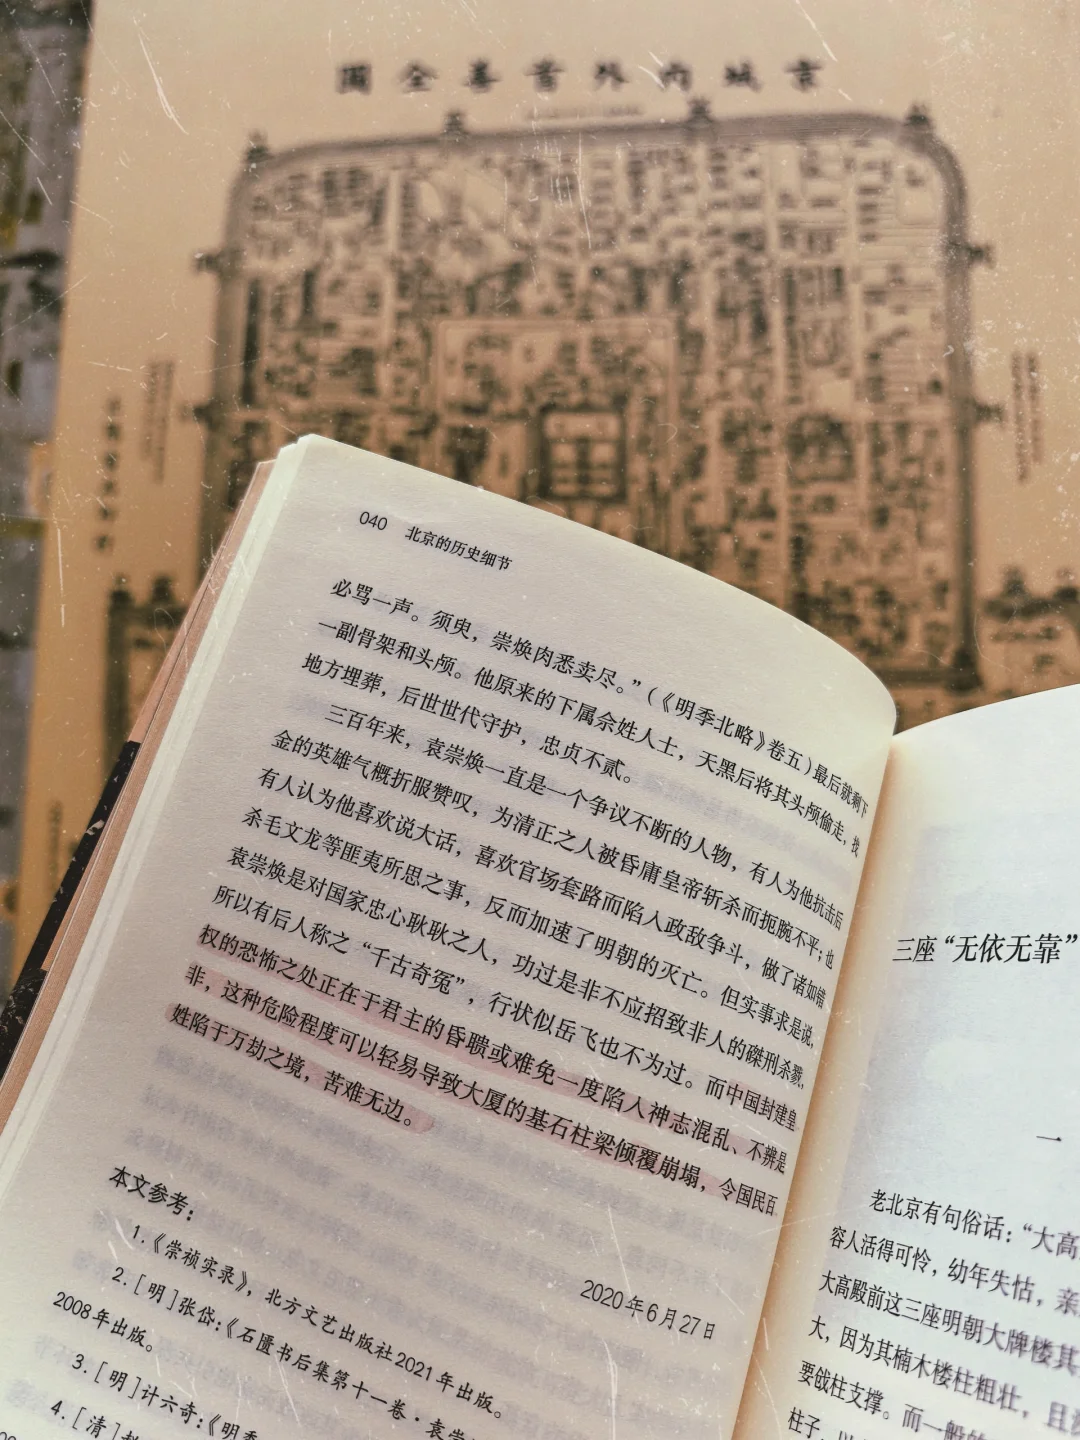 京城內外首善全圖
040 北京的历史细节
必骂一声。须臾，崇焕肉悉卖尽。”（《明季北略》卷五）最后就剩下
一副骨架和头颅。他原来的下属佘姓人士，天黑后将其头颅偷走，找
地方埋葬，后世世代守护，忠贞不贰。
三百年来，袁崇焕一直是一个争议不断的人物，有人为他抗击后
金的英雄气概折服赞叹，为清正之人被昏庸皇帝斩杀而扼腕不平；也
有人认为他喜欢说大话，喜欢官场套路而陷入政敌争斗，做了诸如错
杀毛文龙等匪夷所思之事，反而加速了明朝的灭亡。但实事求是说，
袁崇焕是对国家忠心耿耿之人，功过是非不应招致非人的磔刑杀戮，
所以有后人称之“千古奇冤”，行状似岳飞也不为过。而中国封建皇
权的恐怖之处正在于君主的昏聩或难免一度陷入神志混乱、不辨是
非，这种危险程度可以轻易导致大厦的基石柱梁倾覆崩塌，令国民百
姓陷于万劫之境，苦难无边。
2020年6月27日
本文参考：
1.《崇祯实录》，北方文艺出版社2021年出版。
2.［明］张岱：《石匮书后集第十一卷·袁崇
2008年出版。
3.［明］计六奇：《明季
4.［清］
三座“无依无靠”
一
老北京有句俗话：“大高
容人活得可怜，幼年失怙，亲
大高殿前这三座明朝大牌楼其
大，因为其楠木楼柱粗壮，且
要戗柱支撑。而一般的
柱子，以